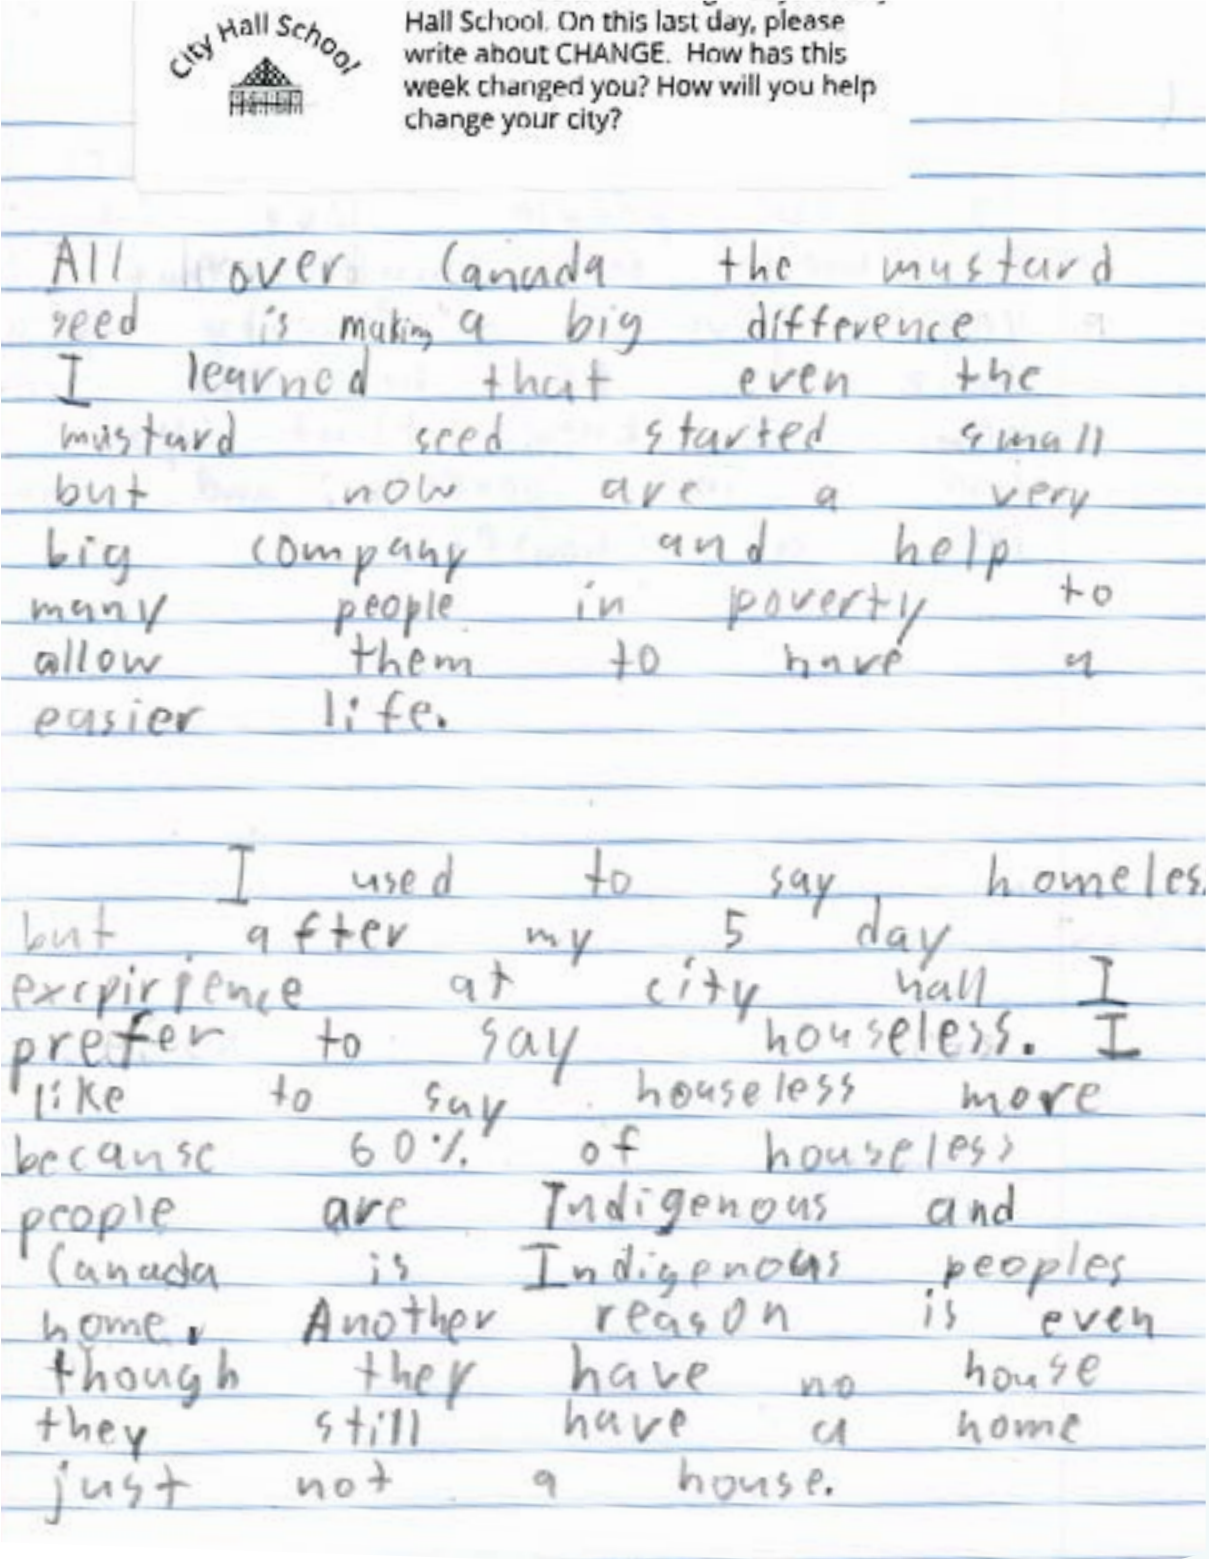 City Hall School
Hall School. On this last day, please
write about CHANGE. How has this
week changed you? How will you help
change your city?
All over Canada the mustard
seed is making a big difference
I learned that even the
mustard seed started small
but now are a very
big company and help
many people in poverty to
allow them to have a
easier life.
I used to say homeles
but after my 5 day
excpirience at city hall I
prefer to say houseless. I
like to say houseless more
because 60% of houseless
people are Indigenous and
Canada is Indigenous peoples
home. Another reason is even
though they have no house
they still have a home
just not a house.